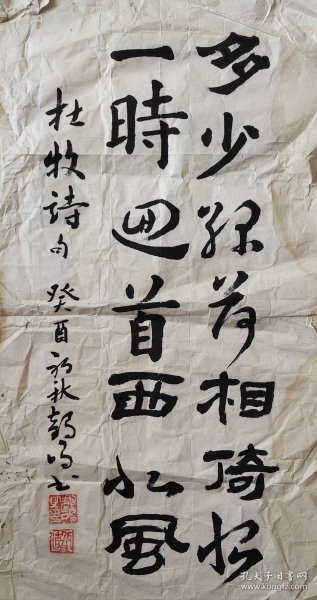 多少綠荷相倚恨
一時迴首西北風
杜牧詩句 癸酉初秋
孔夫子旧书网